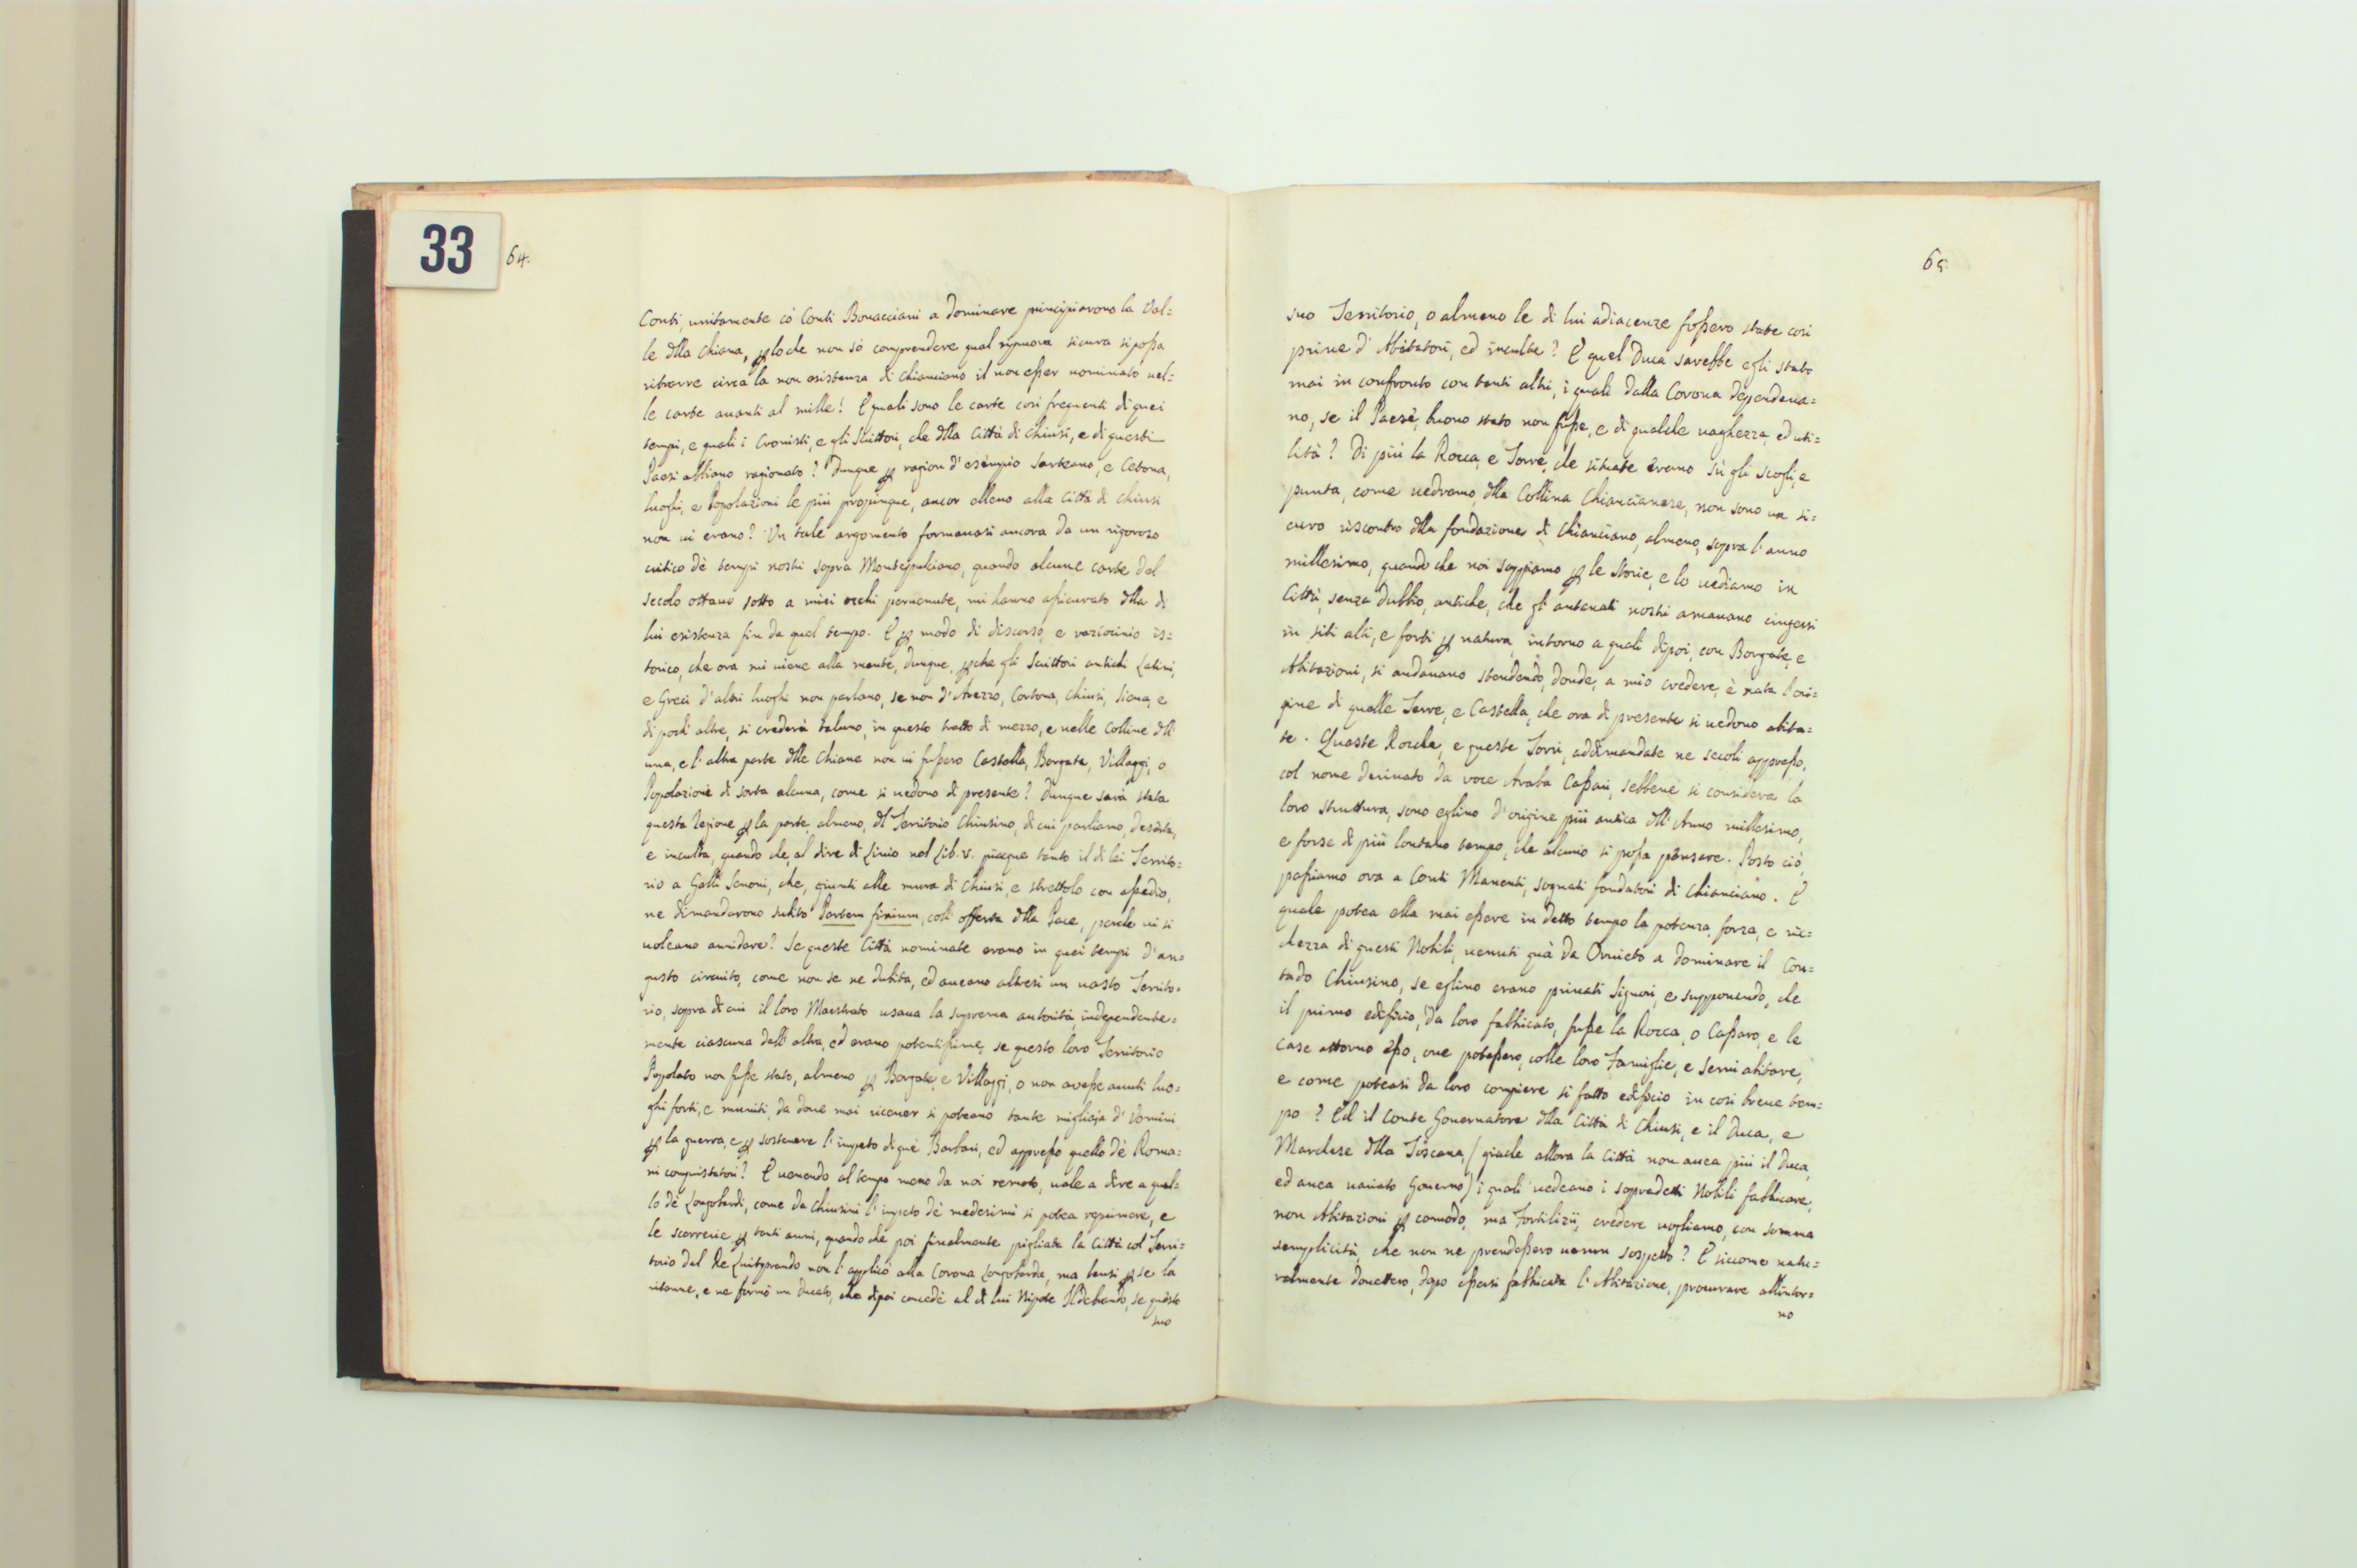 33
64.
Conti, unitamente có Conti Bonacciani a dominare principiarono la Val=
le dlla Chiana, ꝑloche non só comprendere qual riprova sicura si possa
ritrarre circa la non esistenza di Chianciano il non esser nominato nel=
le carte auanti al mille! E quali sono le carte cosi frequenti di quei
tempi, e quali i Cronisti, e gli Scrittori, che dlla Città di Chiusi, e di questi
Paesi abbiano ragionato? Dunque ꝑ ragion d'esempio Sarteano, e Cetona,
luoghi, e Popolazioni le più propinque, ancor elleno alla Città di Chiusi
non ui erano? Un tale argomento formauasi ancora da un rigoroso
critico dè tempi nostri sopra Montepulciano, quando alcune carte del
secolo ottauo sotto a miei occhi peruenute, mi hanno assicurato dlla di
lui esistenza fin da quel tempo. E ꝑ modo di discorso, e raziocinio is=
torico, che ora mi uiene alla mente, dunque, ꝑche gli Scrittori antichi Latini,
e Greci d'altri luoghi non parlano, se non d'Arezzo, Cortona, Chiusi, Siena, e
di pochi altre, si crederà taluno, in questo tratto di mezzo, e nelle Colline dll'
una, e l'altra parte dlle Chiane non ui fussero Castella, Borgate, Villaggi, o
Popolazione di sorta alcuna, come si uedono di presente? Dunque sarà stata
questa Regione ꝑ la parte, almeno, dl Territorio Chiusino, di cui parliamo, deserta,
e inculta, quando che, al dire di Liuio nel Lib. V. piacque tanto il di lei Territo=
rio a Galli Senoni, che, giunti alle mura di Chiusi, e strettolo con assedio,
ne dimandarono subito Partem finium, coll'offerta dlla Pace, perche ui si
uoleano annidare? Se queste Città nominate erano in quei tempi d'an=
gusto circuito, come non se ne dubita, ed aueano altresi un uasto Territo=
rio, sopra di cui il loro Maestrato usaua la suprema autorità independente=
mente ciascuna dall'altra, ed erano potentissime, se questo loro Territorio
Popolato non fusse stato, almeno ꝑ Borgate, e Villaggi, o non auesse auuti luo=
ghi forti, e muniti, da doue mai riceuer si poteano tante migliaja d'Uomini
ꝑ la guerra, e ꝑ sostenere l'impeto di què Barbari, ed appresso quello dè Roma=
ni conquistatori? E uenendo al tempo meno da noi remoto, uale a dire a quel=
lo dè Longobardi, come da Chiusini l'impeto dè medesimi si potea reprimere, e
le scorrerie ꝑ tanti anni, quando che poi finalmente pigliata la Città col Terri=
torio dal Re Luitprando non l'applicò alla Corona Longobarda, ma bensi ꝑ se la
ritenne, e ne formò un Ducato, che dipoi concedè al di lui Nipote Ildebrando, se questo
suo
65
suo Territorio, o almeno le di lui adiacenze fossero state cosi
priue d'Abitatori, ed inculte? E quel Duca sarebbe egli stato
mai in confronto con tanti altri, i quali dalla Corona dependeua=
no, se il Paese, buono stato non fusse, e di qualche uaghezza, ed uti=
lità? Di più la Rocca, e Torre, che situate erano sù gli scogli, e
punta, come uedremo, dlla Collina Chiancianese, non sono un si=
curo riscontro dlla fondazione di Chianciano, almeno, sopra l'anno
millesimo, quando che noi sappiamo ꝑ le Storie, e lo uediamo in
Città, senza dubbio, antiche, che gl'antenati nostri amauano cingersi
in siti alti, e forti ꝑ natura, intorno a quali dipoi, con Borgate, e
Abitazioni, si andauano stendendo, donde, a mio credere, è nata l'ori=
gine di quelle Terre, e Castella, che ora di presente si uedono abita=
te. Queste Rocche, e queste Torri, addimandate ne secoli appresso,
col nome deriuato da voce Araba Cassari, sebbene si considera la
loro struttura, sono eglino d'origine più antica dll'Anno millesimo,
e forse di più lontano tempo, che alcuno si possa pensare. Posto ciò,
passiamo ora a Conti Manenti, sognati fondatori di Chianciano. E
quale potea ella mai essere in detto tempo la potenza, forza, e ric=
chezza di questi Nobili, uenuti quà da Oruieto a dominare il Con=
tado Chiusino, se eglino erano priuati Signori, e supponendo, che
il primo edificio, da loro fabbricato, fusse la Rocca, o Cassaro, e le
Case attorno esso, oue potessero, colle loro Famiglie, e Serui abitare,
e come poteasi da loro compiere si fatto edificio in cosi breue tem=
po? Ed il Conte Gouernatore dlla Città di Chiusi, e il Duca, e
Marchese dlla Toscana, (giache allora la Città non auea più il Duca,
ed auea uariato Gouerno) i quali uedeano i sopradetti Nobili fabbricare,
non Abitazioni ꝑ comodo, ma Fortilizii, credere uogliamo, con somma
semplicità, che non ne prendessero uerun sospetto? E siccome natu=
ralmente douettero, dopo essersi fabbricata l'Abitazione, procurare all'intor=
no